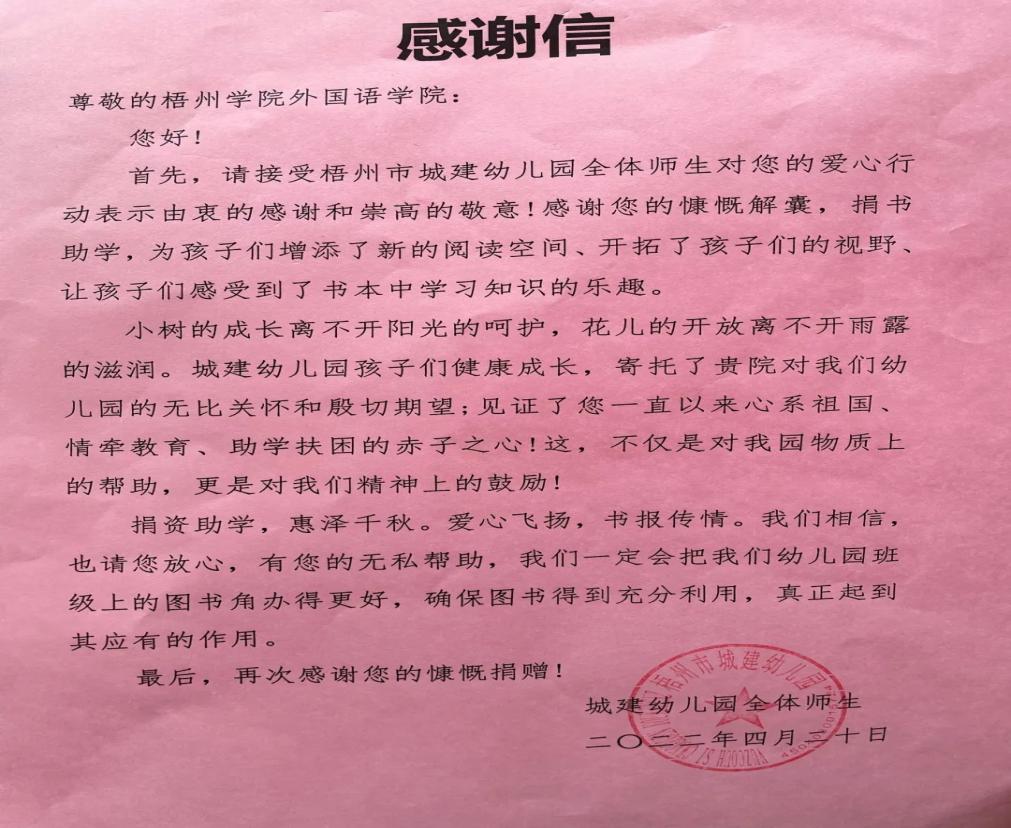 感谢信
尊敬的梧州学院外国语学院：
您好！
首先，请接受梧州市城建幼儿园全体师生对您的爱心行
动表示由衷的感谢和崇高的敬意！感谢您的慷慨解囊，捐书
助学，为孩子们增添了新的阅读空间、开拓了孩子们的视野、
让孩子们感受到了书本中学习知识的乐趣。
小树的成长离不开阳光的呵护，花儿的开放离不开雨露
的滋润。城建幼儿园孩子们健康成长，寄托了贵院对我们幼
儿园的无比关怀和殷切期望；见证了您一直以来心系祖国、
情牵教育、助学扶困的赤子之心！这，不仅是对我园物质上
的帮助，更是对我们精神上的鼓励！
捐资助学，惠泽千秋。爱心飞扬，书报传情。我们相信，
也请您放心，有您的无私帮助，我们一定会把我们幼儿园班
级上的图书角办得更好，确保图书得到充分利用，真正起到
其应有的作用。
最后，再次感谢您的慷慨捐赠！
梧州市城建幼儿园
城建幼儿园全体师生
二〇二二年四月二十日